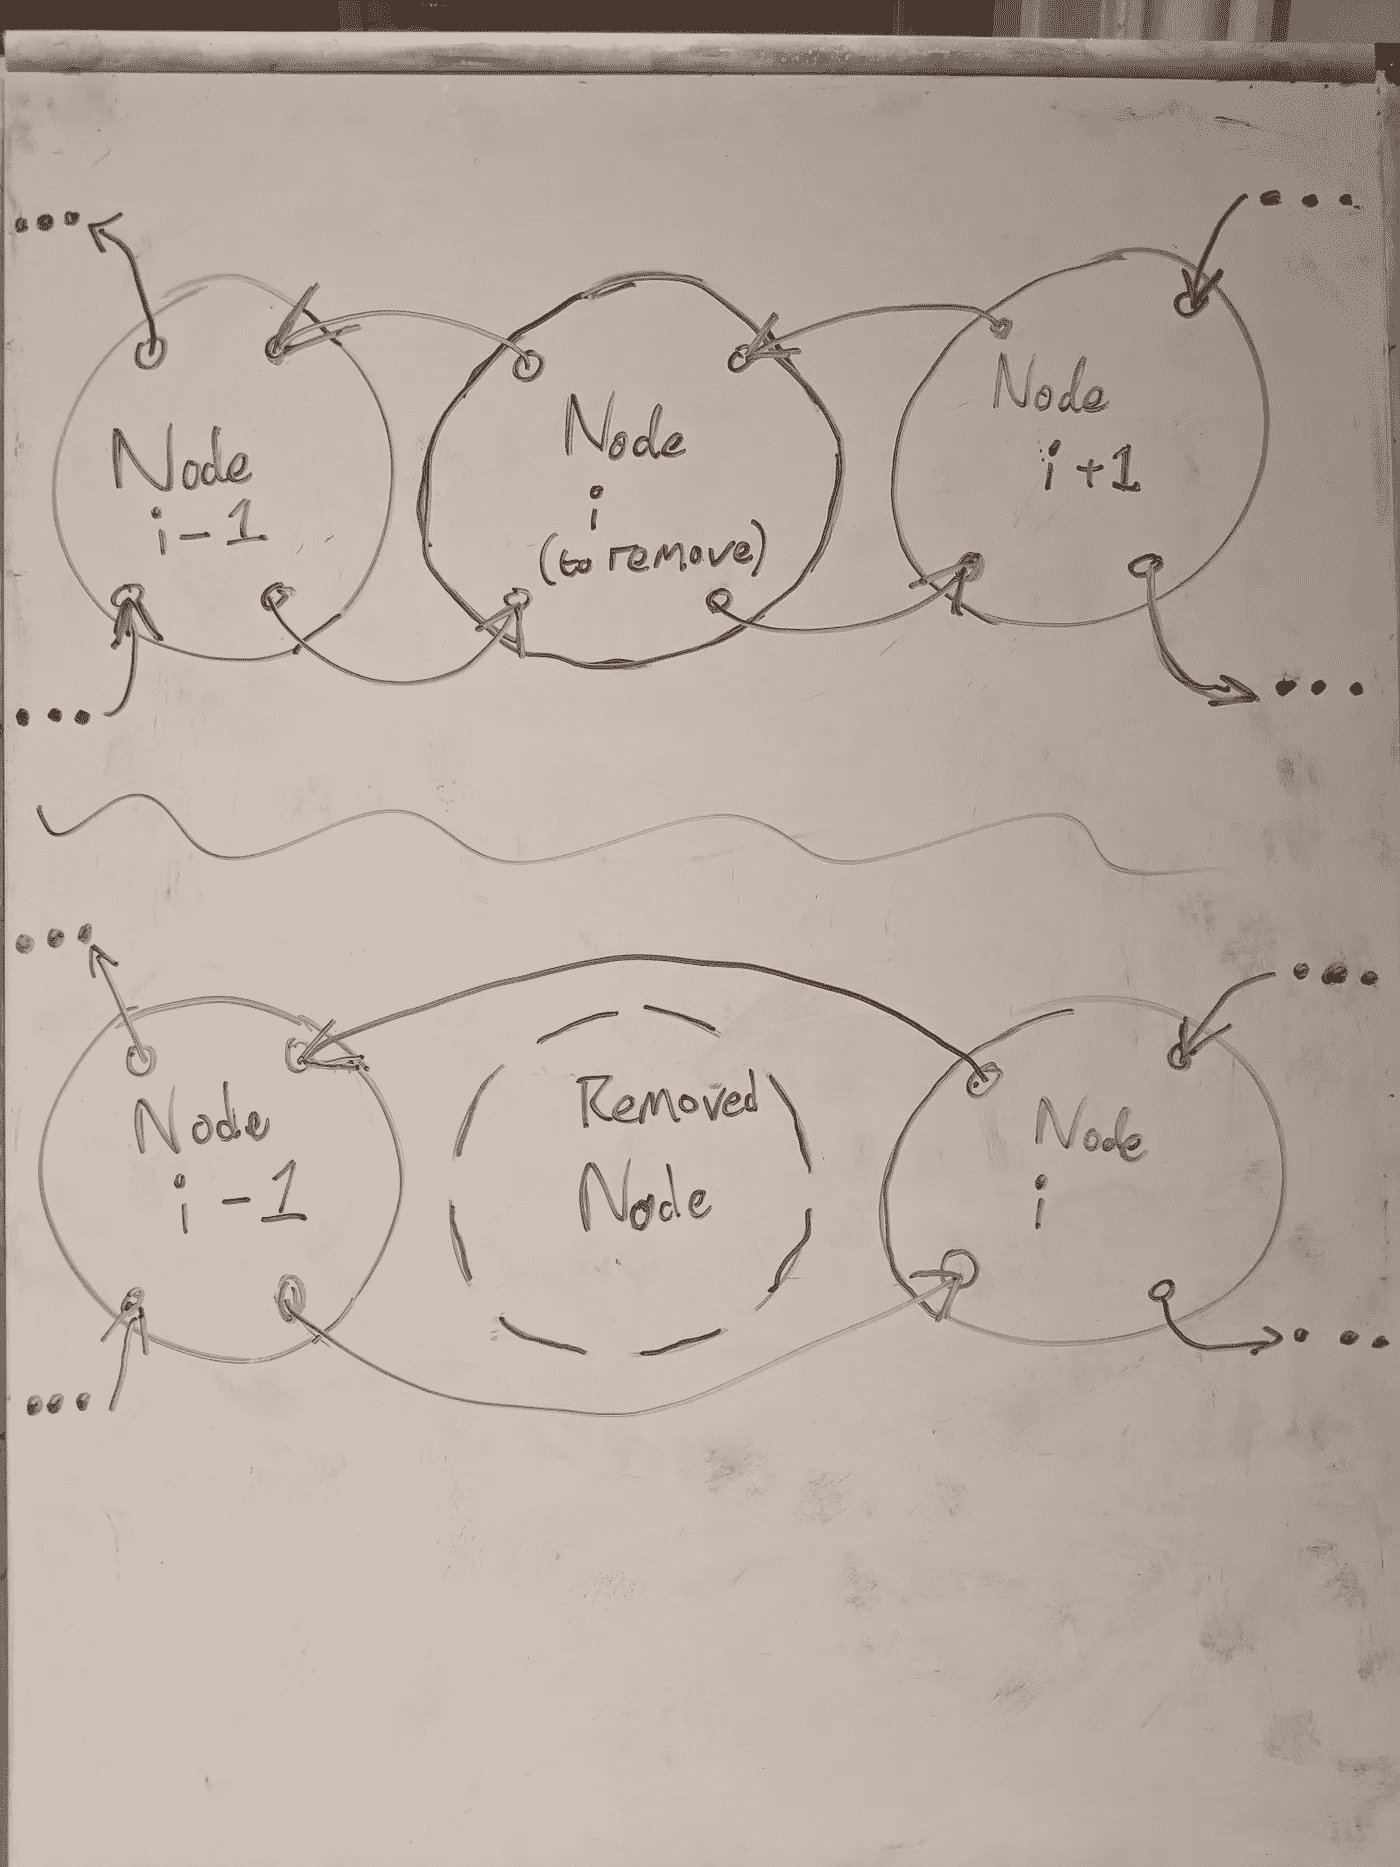 Node
i-1
Node
i
(to remove)
Node
i+1
Node
i-1
Removed
Node
Node
i